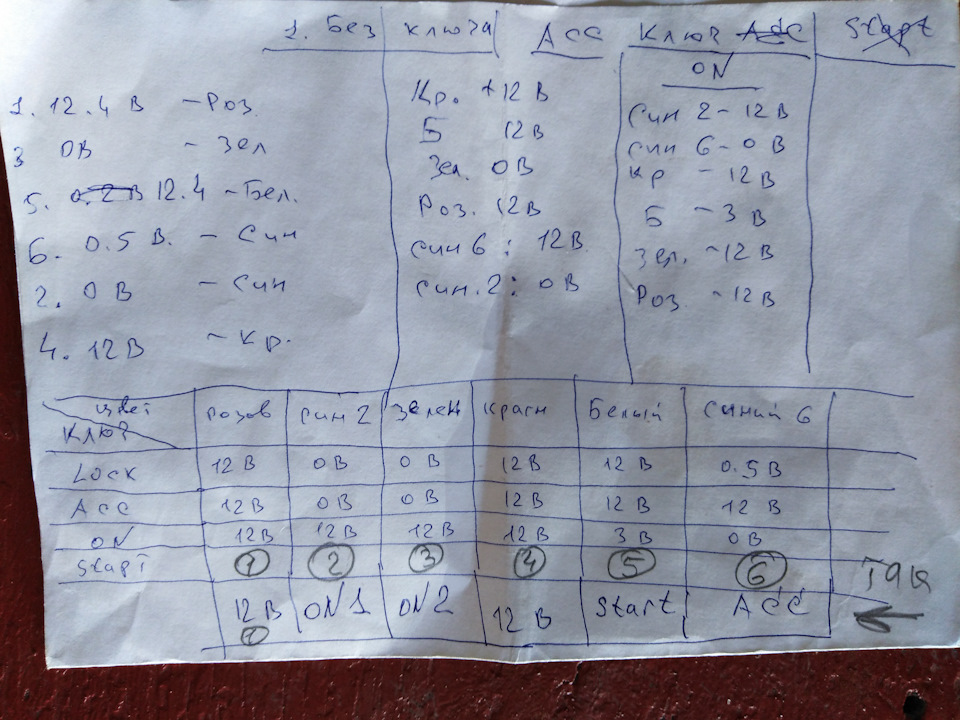 1. Без ключа
1. 12.4 В - Роз.
3 0В - Зел
5. 0.2 В 12.4 - Бел.
6. 0.5 В. - Син
2. 0 В - Син
4. 12 В - Кр.
ACC
Кр. +12 В
Б 12 В
Зел. 0 В
Роз. 12 В
син 6: 12 В.
син. 2: 0 В
Ключ ACC
ON
син 2 - 12 В
син 6 - 0 В
кр - 12 В
Б - 3 В
зел. - 12 В
Роз - 12 В
Start
цвет розов син 2 зелен красн Белый синий 6
ключ
Lock 12 В 0 В 0 В 12 В 12 В 0.5 В
ACC 12 В 0 В 0 В 12 В 12 В 12 В
ON 12 В 12 В 12 В 12 В 3 В 0 В
Start 1 2 3 4 5 6
12 В ON 1 ON 2 12 В Start ACC
1